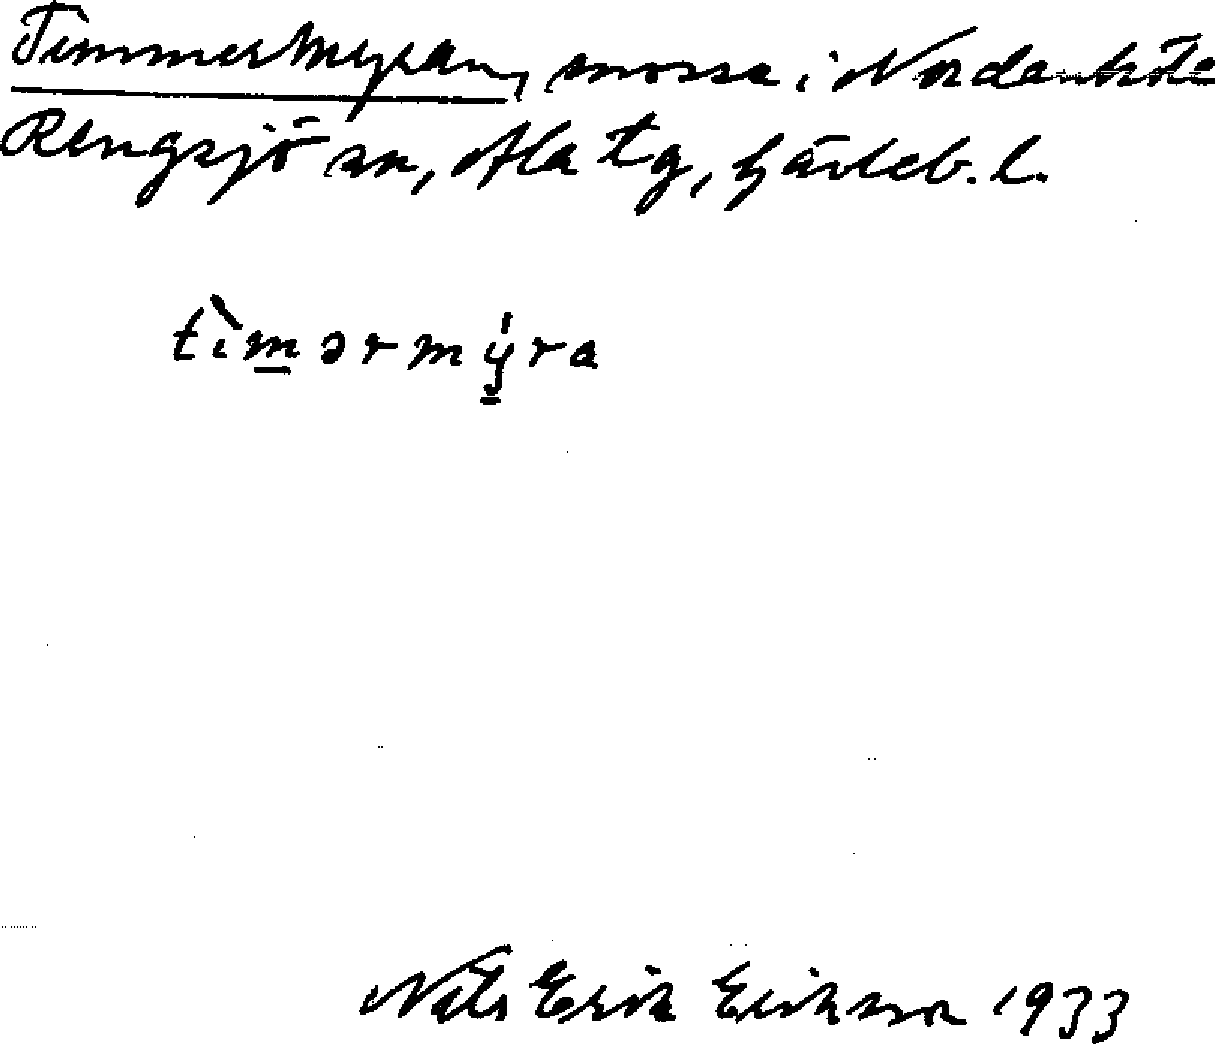 Timmermyran, mossa i Nordanhöle
Rengsjö sn, Ala tg, Gävleb. l.
tìm̲ərmý̲ra
Nils Erik Eriksson 1933